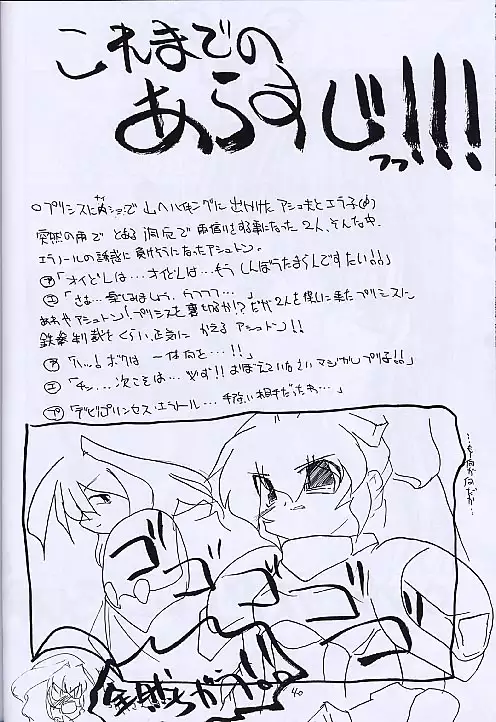 これまでの
あらすじっっ!!!
○プリシスにナイショで山へハイキングに出かけたアシュトンとエラ子(め)
突然の雨でとある洞窟で雨宿りをする事になった2人。そんな中、
エラノールの誘惑に負けそうになったアシュトン。
ア「オイどんは…オイどんは…もう しんぼうたまらんですたい!!」
エ「さあ…愛しあいましょう、うフフフ…。」
ああ アシュトン!プリシスを裏切るか!?だが2人を探しに来たプリシスに
鉄拳制裁をくらい、正気に かえる アシュトン!!
ア「ハッ…!ボクは 一体何を…!!」
エ「チッ…、次こそは…必ず!!おぼえていなさいマジカルプリ子!!」
プ「デビルプリンセス・エラノール…手強い相手だったわ…」
ゴゴゴゴゴ
全然ちがう!!
40